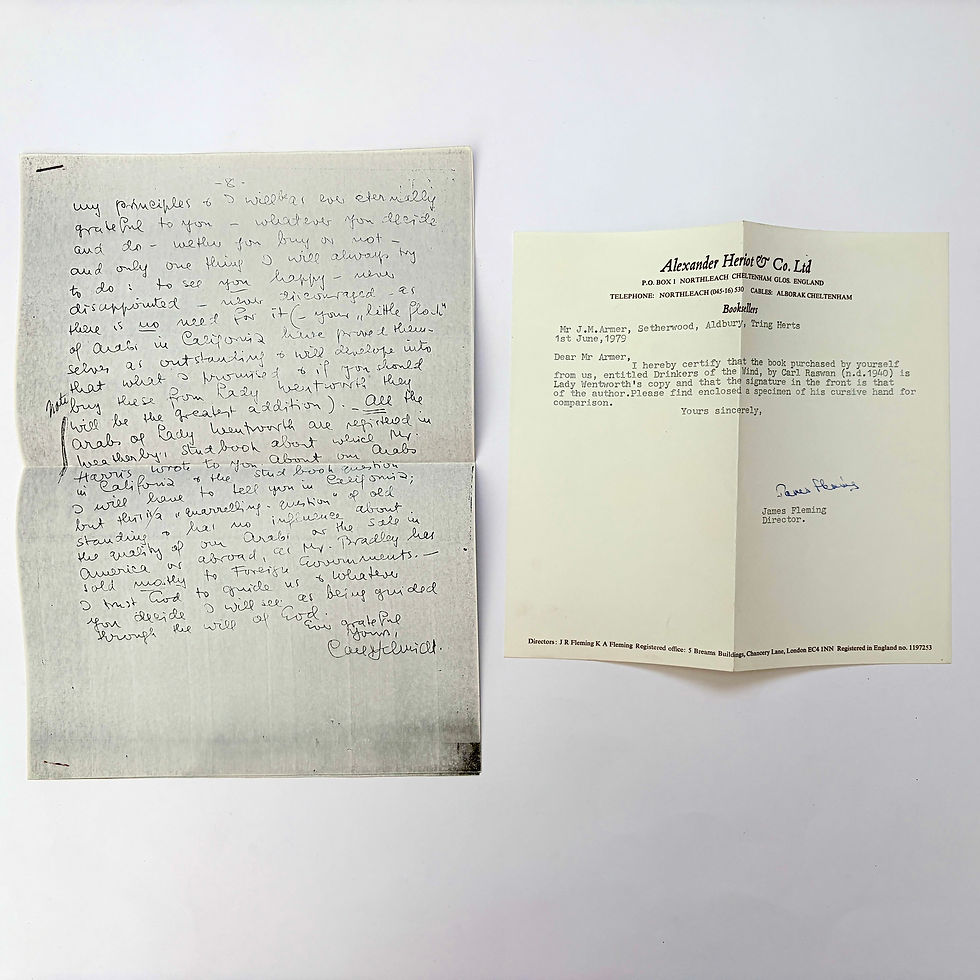 -8-
my principles & I will as ever eternally
grateful to you - whatever you decide
and do - wether you buy or not -
and only one thing I will always try
to do: to see you happy - never
disappointed - never discouraged as
there is no need for it (- your "little flock"
of Arabs in California have proved them-
selves as outstanding & will develope into
that what I promised & if you should
buy these from Lady Wentworth they
will be the greatest addition) - All the
Note
Arabs of Lady Wentworth are registered in
Weatherby's studbook about which Mr.
Harris wrote to you. About our Arabs
in California & the stud book question
I will have to tell you in California;
but this is a "quarrelling-question" of old
standing & has no influence about
the quality of our Arabs or the sale in
America or abroad, as Mr. Bradley has
sold mostly to Foreign Governments. -
I trust God to guide us & whatever
you decide I will see as being guided
through the will of God.
Ever grateful
Yours,
Carl Schmidt.
Alexander Heriot & Co. Ltd
P.O. BOX 1 NORTHLEACH CHELTENHAM GLOS. ENGLAND
TELEPHONE: NORTHLEACH (045-16) 530 CABLES: ALBORAK CHELTENHAM
Booksellers
Mr J.M.Armer, Setherwood, Aldbury, Tring Herts
1st June,1979
Dear Mr Armer,
I hereby certify that the book purchased by yourself
from us, entitled Drinkers of the Wind, by Carl Raswan (n.d.1940) is
Lady Wentworth's copy and that the signature in the front is that
of the author.Please find enclosed a specimen of his cursive hand for
comparison.
Yours sincerely,
James Fleming
James Fleming
Director.
Directors: J R Fleming K A Fleming Registered office: 5 Breams Buildings, Chancery Lane, London EC4 1NN Registered in England no. 1197253